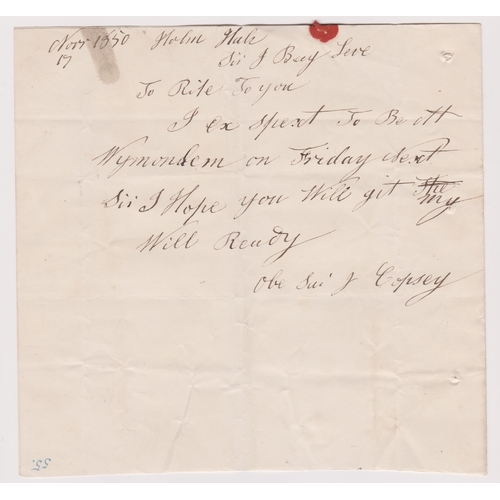 Novr 1850 Holm Hale
17 Sir I Beg Leve
To Rite To you
I ex spext To Be att
Wymondem on Friday Next
Sir I Hope you Will git The
my
Will Ready
Obe Sir J Copsey
55.